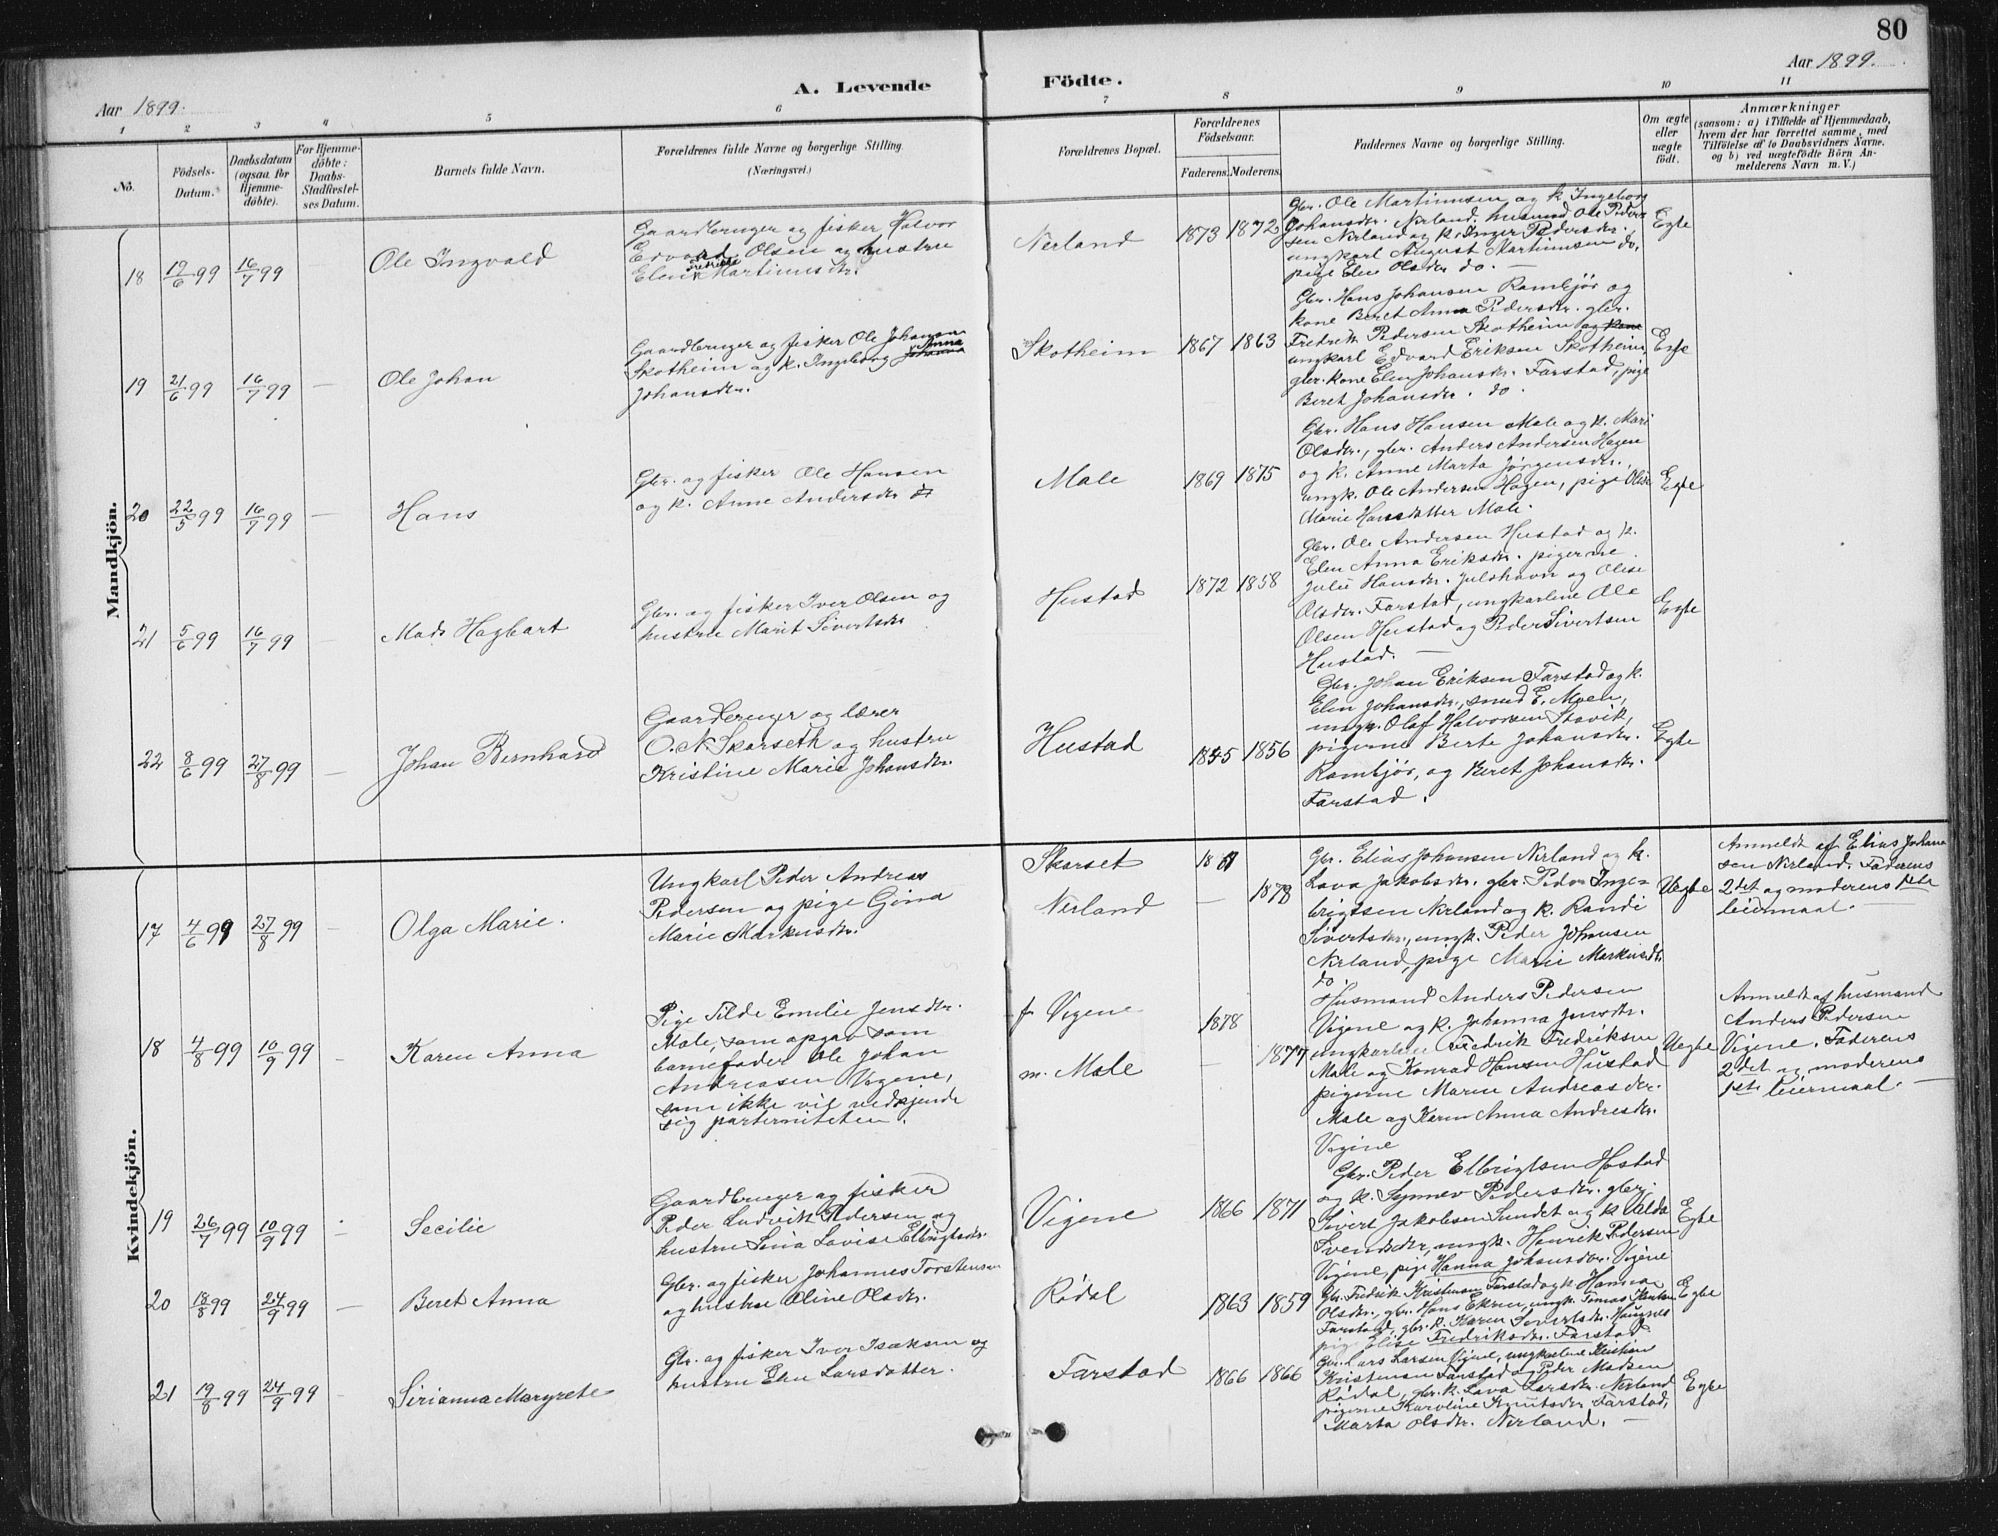 80
Aar 1899.
A. Levende
Födte.
Aar 1899.
1
2
3
4
5
6
7
8
9
10
11
No.
Födsels-
Datum.
Daabsdatum
(ogsaa for
Hjemme-
döbte).
For Hjemme-
döbte:
Daabs-
Stadfæstel-
ses Datum.
Barnets fulde Navn.
Forældrenes fulde Navne og borgerlige Stilling
(Næringsvei.)
Forældrenes Bopæl.
Forældrenes
Födselsaar.
Faderens.
Moderens.
Faddernes Navne og borgerlige Stilling.
Om ægte
eller
uægte
födt.
Anmærkninger
(saasom: a) i Tilfælde af Hjemmedaab,
hvem der har forrettet samme, med
Tilföielse af to Daabsvidners Navne.
og b) ved uægtefödte Börn An-
melderens Navn m. V.)
Mandkjön.
18
19/6 99
16/7 99
Ole Ingvald
Gaardbruger og fisker Halvor
Edvard Olsen og hustru
Elen Martinusdr.
Nerland
1873
1872
Gbr. Ole Martinusen og k. Ingeborg
Johansdr. Nerland, husmd Ole Peder-
sen Nerland og k. Inger Pedersdr.,
ungkarl August Martinusen do,
pige Elen Olsdr do. —
Egte
19
21/6 99
16/7 99
—
Ole Johan
Gaardbruger og fisker Ole Johansen
Skotheim og k. Ingeborg Anna
Johansdr.
Skotheim
1867
1863
Gbr. Hans Johansen Rambjør og
kone Beret Anna Pedersdr. gbr.
Fredrik Pedersen Skotheim og kone
ungkarl Edvard Eriksen Skotheim,
gbr. kone Elen Johansdr. Farstad, pige
Beret Johansdr. do.
Egte
20
22/5 99
16/7 99
—
Hans
Gbr. og fisker Ole Hansen
og k. Anne Andersdr
Male
1869
1875
Gbr. Hans Hansen Male og k. Mari
Olsdr., gbr. Anders Andersen Hagen
og k. Anne Marta Jørgensdr.,
ungk. Ole Andersen Hagen, pige Olise
Marie Hansdatter Male.
Egte
21
5/6 99
16/7 99
—
Mads Hagbart
Gbr. og fisker Iver Olsen og
hustru Marit Sivertsdr
Hustad
1872
1858
Gbr. Ole Andersen Hustad og k.
Elen Anna Eriksdr. pigerne
Julie Hansdr. Julshavn og Olise
Olsdr. Farstad, ungkarlene Ole
Olsen Hustad og Peder Sivertsen
Hustad. —
Egte
22
8/6 99
27/8 99
—
Johan Bernhard
Gaardbruger og lærer
O. N. Skarseth og hustru
Kristine Marie Johansdr.
Hustad
1845
1856
Gbr. Johan Eriksen Farstad og k.
Elen Johansdr., smed E. Moen,
ungk. Olaf Halvorsen Stavik,
pigerne Berte Johansdr.
Rambjør, og Beret Johansdr.
Farstad.
Egte
Kvindekjön.
17
4/6 99
27/8 99
—
Olga Marie.
Ungkarl Peder Andreas
Pedersen og pige Gina
Marie Markusdr.
Skarset
Nerland
—
1878
Gbr. Elias Johansen Nerland og k.
Lava Jakobsdr. gbr. Peder Inge-
brigtsen Nerland og k. Randi
Sivertsdr., ungk. Peder Johansen
Nerland, pige Marie Markusdr.
do.
Uegte
Anmeldt af Elias Johan-
sen Nerland. Faderens
2det og moderens 1ste
leiermaal. —
18
4/8 99
10/9 99
—
Karen Anna
Pige Tilde Emilie Jensdr.
Male, som opgav som
barnefader Ole Johan
Andreasen Vigene,
som ikke vil vedkjende
sig paterniteten.
f. Vigene
m. Male
1878
—
1877
Husmand Anders Pedersen
Vigene og k. Johanna Jensdr.
ungkarlene Fredrik Fredriksen
Male og Konrad Hansen Hustad
pigerne Maren Andreasdr.
Male og Karen Anna Andresdr.
Vigene
Uegte
Anmeldt af husmand
Anders Pedersen
Vigene. Faderens
2det og moderens
1ste leiermaal. —
19
26/7 99
10/9 99
—
Secilie
Gaardbruger og fisker
Peder Ludvik Pedersen og
hustru Lina Lovise Elbrigtsdr.
Vigene
1866
1871
Gbr. Peder Elbrigtsen Hostad
og k. Synnev Pedersdr. gbr.
Sivert Jakobsen Sundet og k. Valda
Svendsdr, ungk. Henrik Pedersen
Vigene, pige Hanna Johansdr. Vigene
Egte
20
18/8 99
24/9 99
—
Beret Anna
Gbr. og fisker Johannes Torstensen
og hustru Oline Olsdr.
Rødal
1863
1859
Gbr. Fredrik Kristensen Farstad og k. Hanna
Olsdr., gbr. Hans Ekren, ungk. Tomas
Farstad, gbr. k. Karen Sivertsdr. Haugnes
pige Elise Fredriksdr. Farstad
Egte
21
19/8 99
24/9 99
—
Sirianna Margrete
Gbr. og fisker Iver Isaksen og
hustru Elen Larsdatter.
Farstad
1866
1866
Gbr. Lars Larsen Vigene, ungkarlene Kristian
Kristensen Farstad og Peder Madsen
Rødal, gbr. k. Lava Larsdr. Nerland
pigerne Karoline Knutsdr Farstad,
Marta Olsdr. Nerland. —
Egte